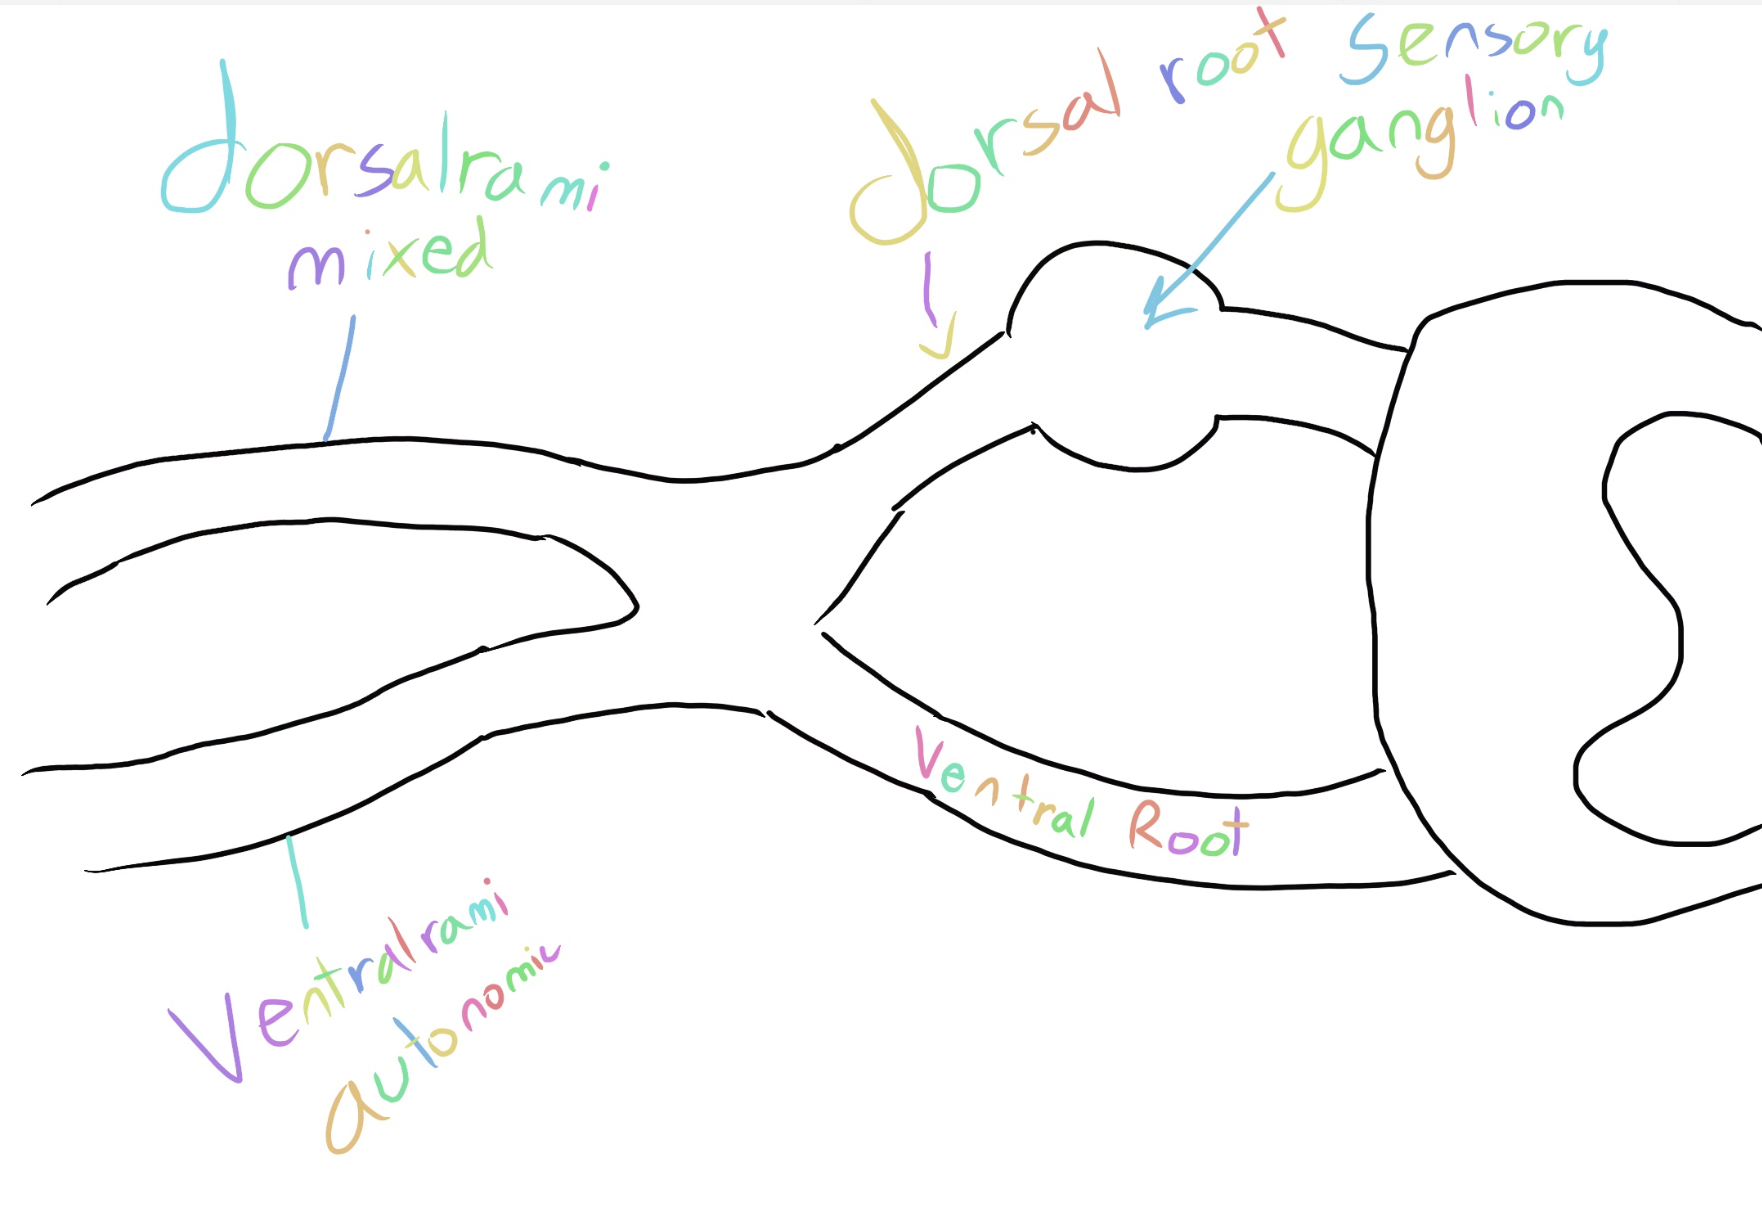 dorsalrami
mixed
dorsal root
Sensory
ganglion
Ventral Root
Ventralrami
autonomic